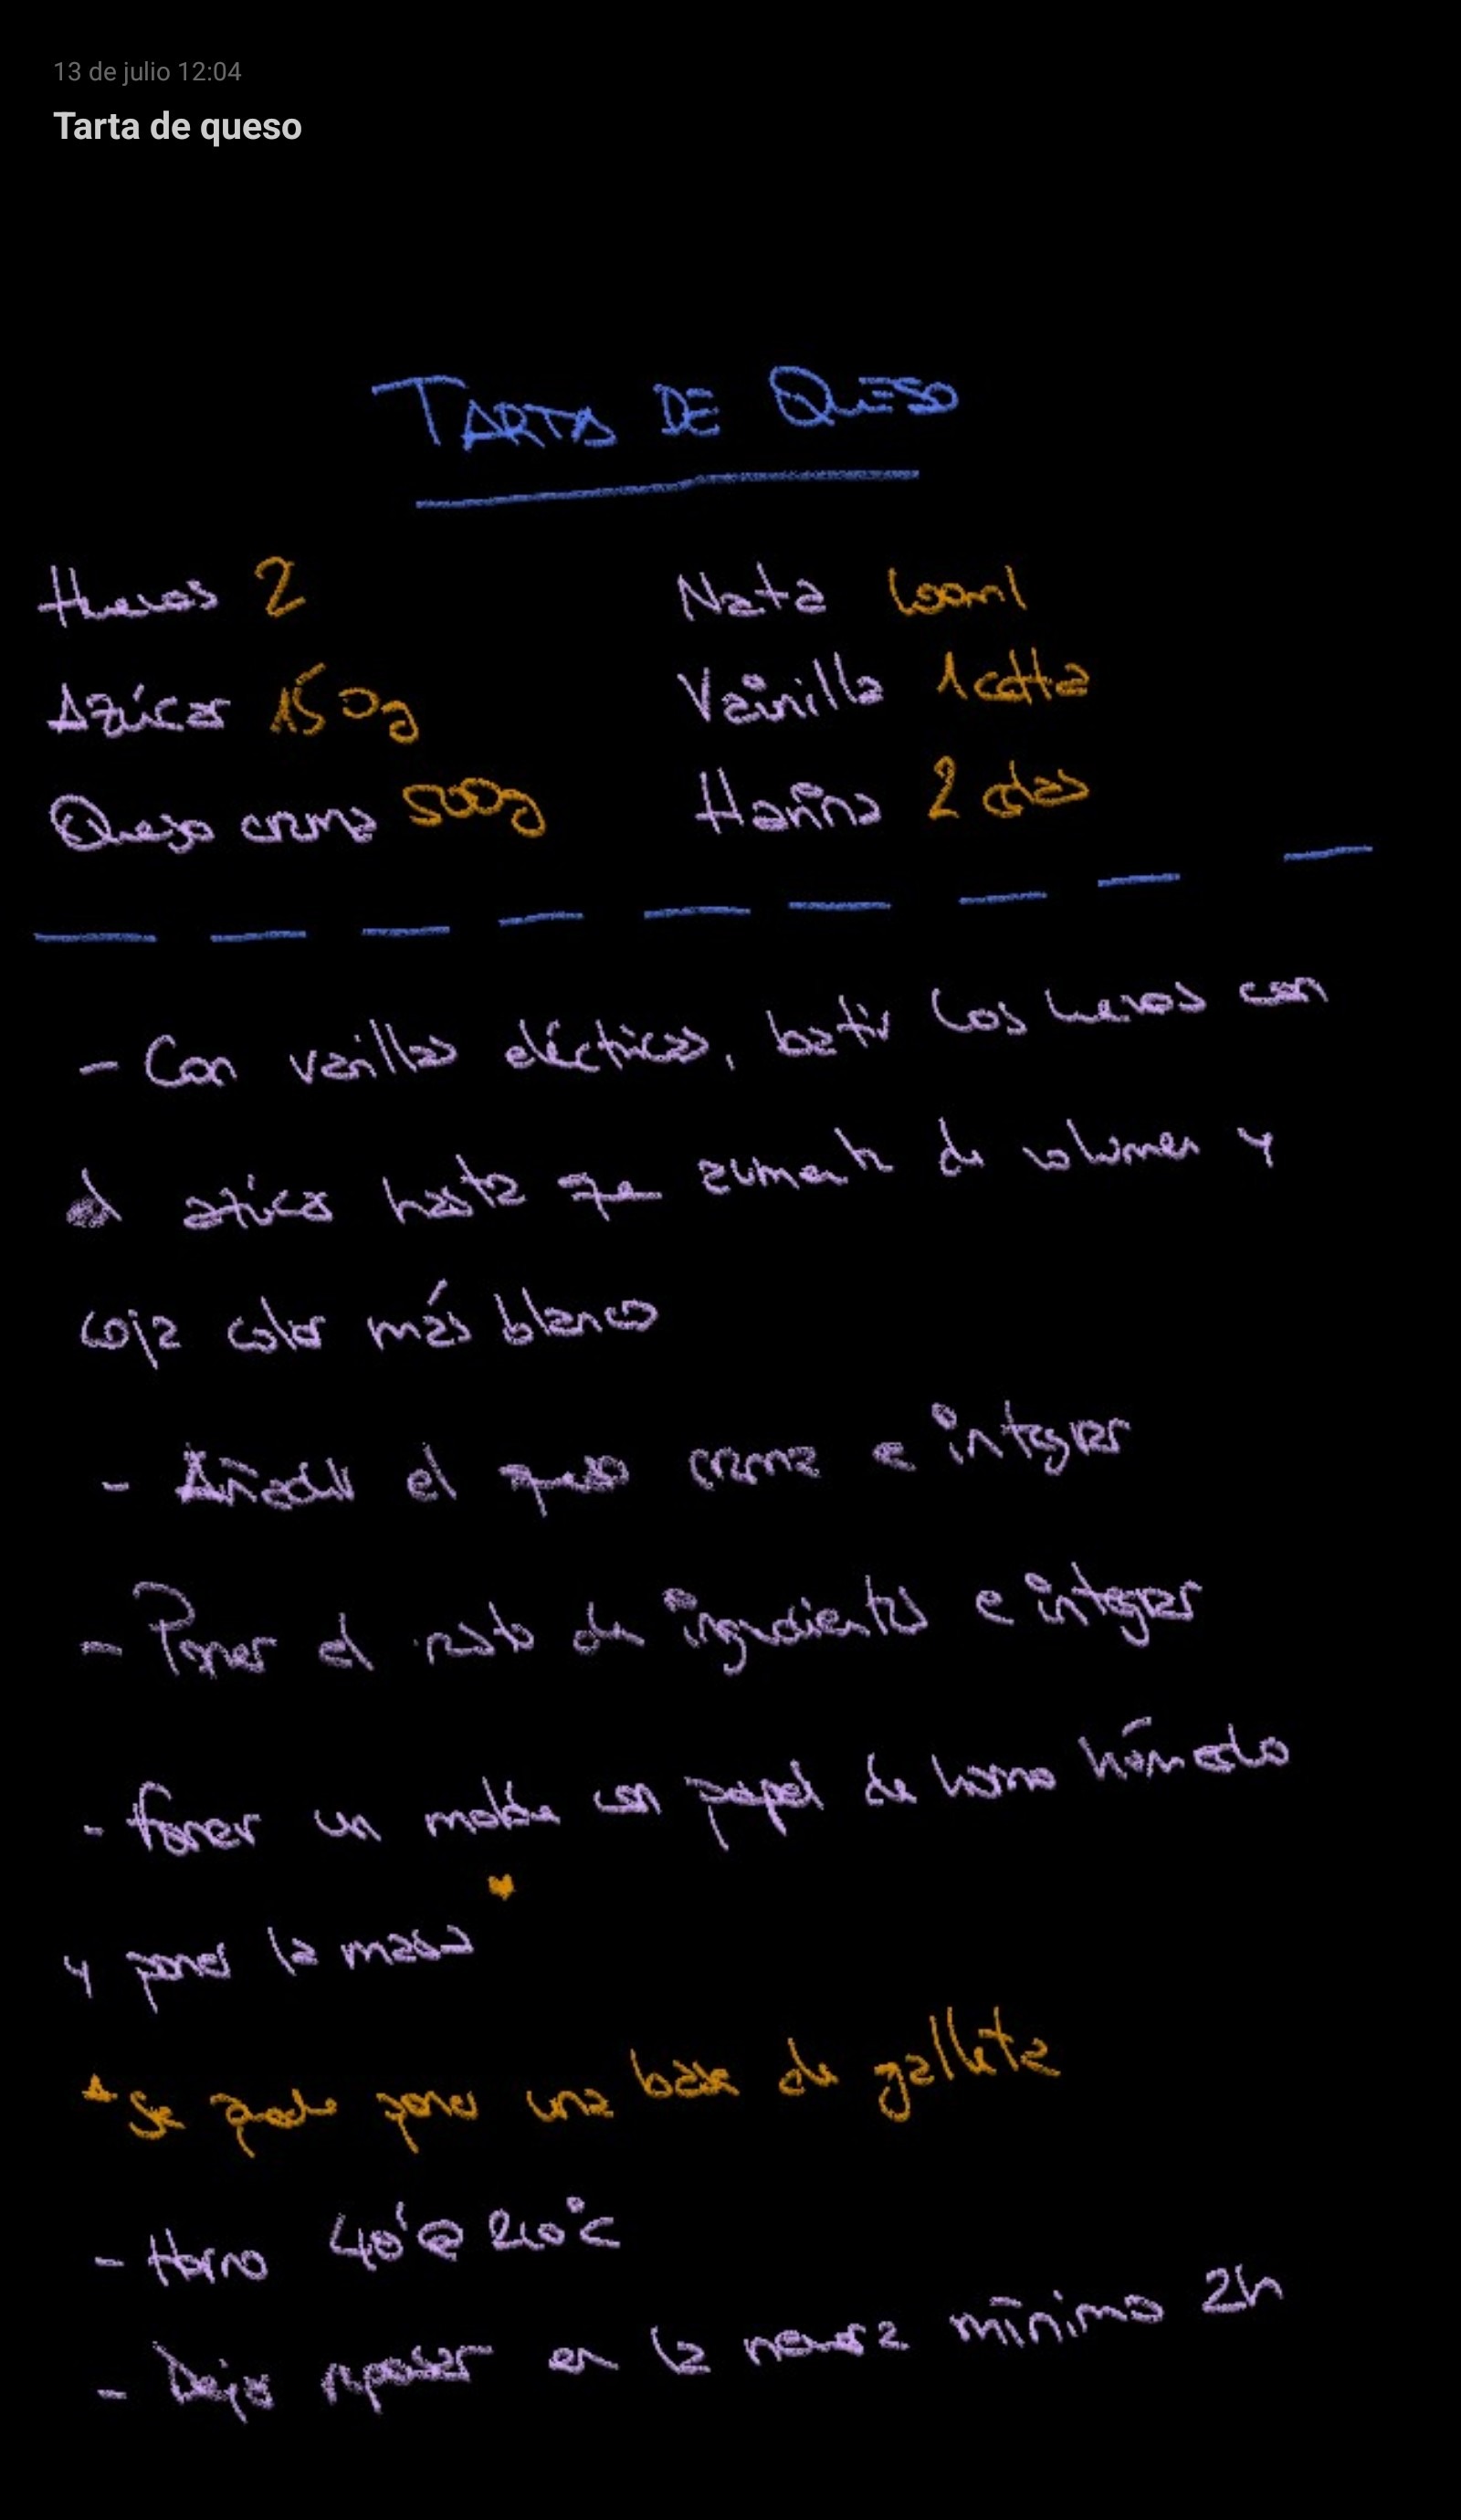 13 de julio 12:04
Tarta de queso
TARTA DE QUESO
Huevos 2
Nata 600ml
Azúcar 150g
Vainilla 1 cdtta
Queso crema 500g
Harina 2 cdas
- Con varillas eléctricas, batir los huevos con
el azúcar hasta que aumente de volumen y
coja color más blanco
- Añadir el queso crema e integrar
- Poner el resto de ingredientes e integrar
- Forrar un molde con papel de horno húmedo
y poner la masa *
* Se puede poner una base de galleta
- Horno 40' @ 210°C
- Dejar reposar en la nevera mínimo 2h